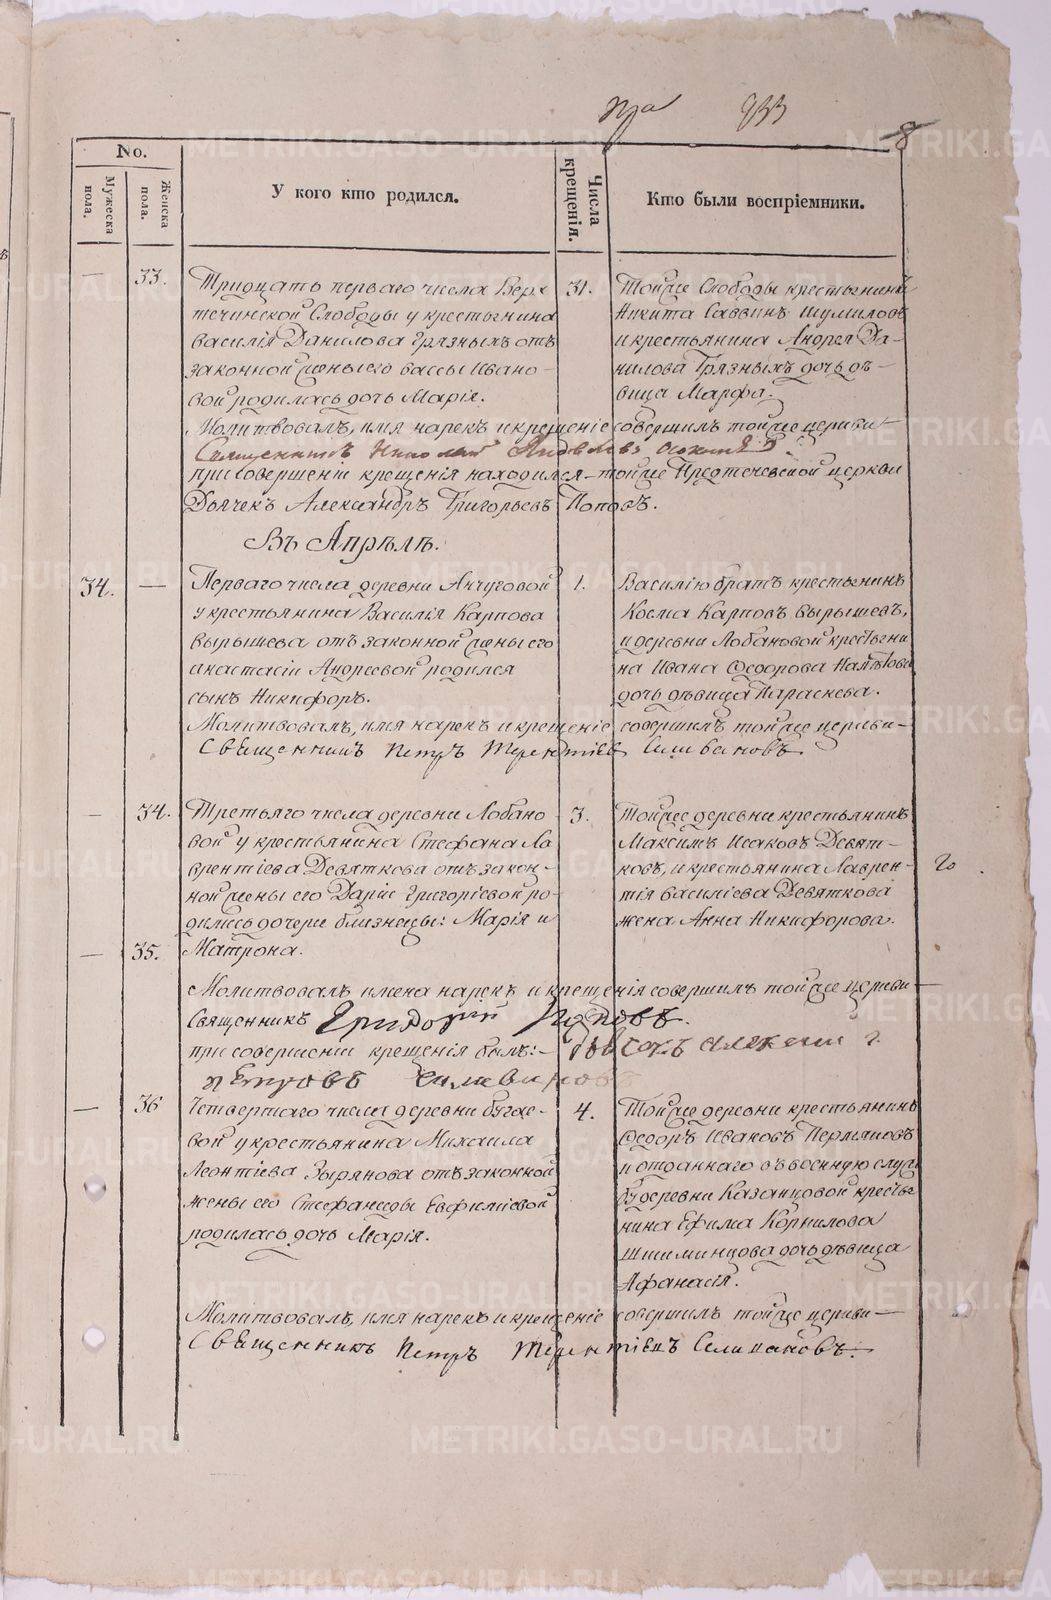 933
8
No.
Мужеска пола.
Женска пола.
У кого кто родился.
Числа крещенія.
Кто были воспріемники.
— 33.
Тридцать перваго числа Верх
теченской Слободы у крестьянина
Василія Данилова Грязныхъ отъ
законной жены его Вассы Ивано-
вой родилась дочь Марія.
31.
Тойже Слободы крестьянинъ
Никита Саввинъ Шумиловъ
и крестьянина Андрея Да-
нилова Грязныхъ дочь дѣ-
вица Марфа.
Молитвовалъ, имя нарекъ и крещеніе совершилъ тойже церкви
Священникъ Николай Яковлевъ
при совершеніи крещенія находился тойже Предтечевской церкви
Дьячекъ Александръ Григорьевъ Поповъ.
Въ Апрѣлѣ.
34. —
Перваго числа деревни Анчуговой
у крестьянина Василія Карпова
Вырышева отъ законной жены его
Анастасіи Андреевой родился
сынъ Никифоръ.
1.
Василію братъ крестьянинъ
Косма Карповъ Вырышевъ,
и деревни Лобановой крестьяни
на Ивана Ѳедорова
дочь дѣвица Параскева.
Молитвовалъ, имя нарекъ и крещеніе совершилъ тойже церкви
Священникъ Петръ Терентіевъ Селивановъ
— 34.
Третьяго числа деревни Лобано
вой у крестьянина Стефана Ла
врентіева Девяткова отъ закон-
ной жены его Даріи Григоріевой ро-
дились дочери близнецы: Марія и
— 35.
Матрона.
3.
Тойже деревни крестьянинъ
Максимъ Исаковъ Девят-
ковъ, и крестьянина Лаврен-
тія Василіева Девяткова
жена Анна Никифорова.
Молитвовалъ имена нарекъ и крещенія совершилъ тойже церкви
Священникъ Григорій Поповъ.
при совершеніи крещенія былъ:
Петровъ Селивановъ
— 36
Четвертаго числа деревни Бугае-
вой у крестьянина Михаила
Леонтіева Зырянова отъ законной
жены его Стефаниды Евфиміевой
родилась дочь Марія.
4.
Тойже деревни крестьянинъ
Ѳедоръ Ивановъ Пермяковъ
и отданнаго въ военную служ
бу деревни Казанцовой крестья
нина Ефима Корнилова
Шишминцова дочь дѣвица
Афанасія.
Молитвовалъ, имя нарекъ и крещеніе совершилъ тойже церкви
Священникъ Петръ Терентіевъ Селивановъ.
METRIKI.GASO-URAL.RU